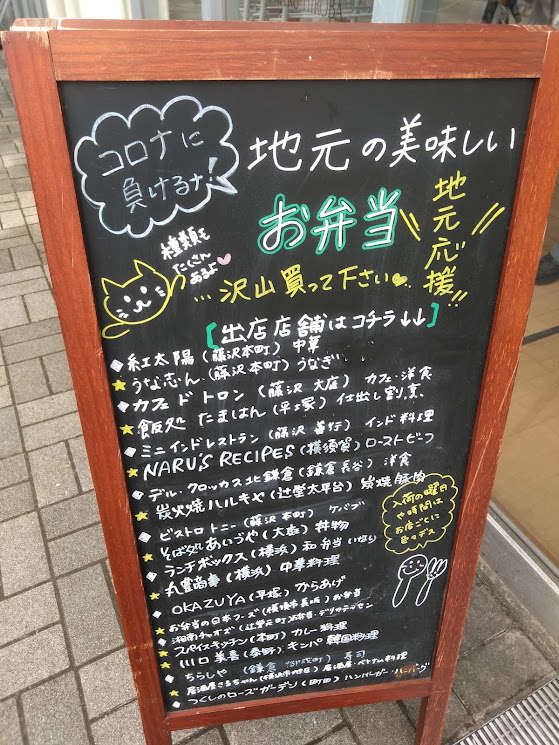 コロナに
負けるナ!
地元の美味しい
お弁当
地元応援!!
種類も
たくさん
あるよ♥
...沢山買って下さい♥
[出店店舗はコチラ↓↓]
◆紅太陽(藤沢本町)中華
★うな志ん(藤沢本町)うなぎ
◆カフェ ド トロン(藤沢 大庭)カフェ・洋食
★飯処 たまはん(平塚)仕出し割烹
◆ミニインドレストラン(藤沢 善行)インド料理
★NARU'S RECIPES(横須賀)ローストビーフ
◆デル・クロックス北鎌倉(鎌倉長谷)洋食
★炭火焼ハルキや(辻堂太平台)炭焼豚肉
◆ビストロ トニー(藤沢 本町)ケバブ
★そば処あいうや(大庭)丼物
◆ランチボックス(横浜)和弁当
★丸豊商事(横浜)中華料理
◆OKAZUYA(平塚)からあげ
★お弁当の日本フーズ お弁当
◆湘南チャオズ デリカテッセン
★スパイスキッチン(本町)カレー料理
★川口美喜(秦野)キンパ 韓国料理
◆ちらしや(鎌倉 御成町)寿司
★居酒屋さるちゃん 居酒屋・ベトナム料理
◆つくしのローズガーデン(町田)ハンバーガー・ハンバーグ
入荷の曜日
や時間は
お店ごとに
色々デス